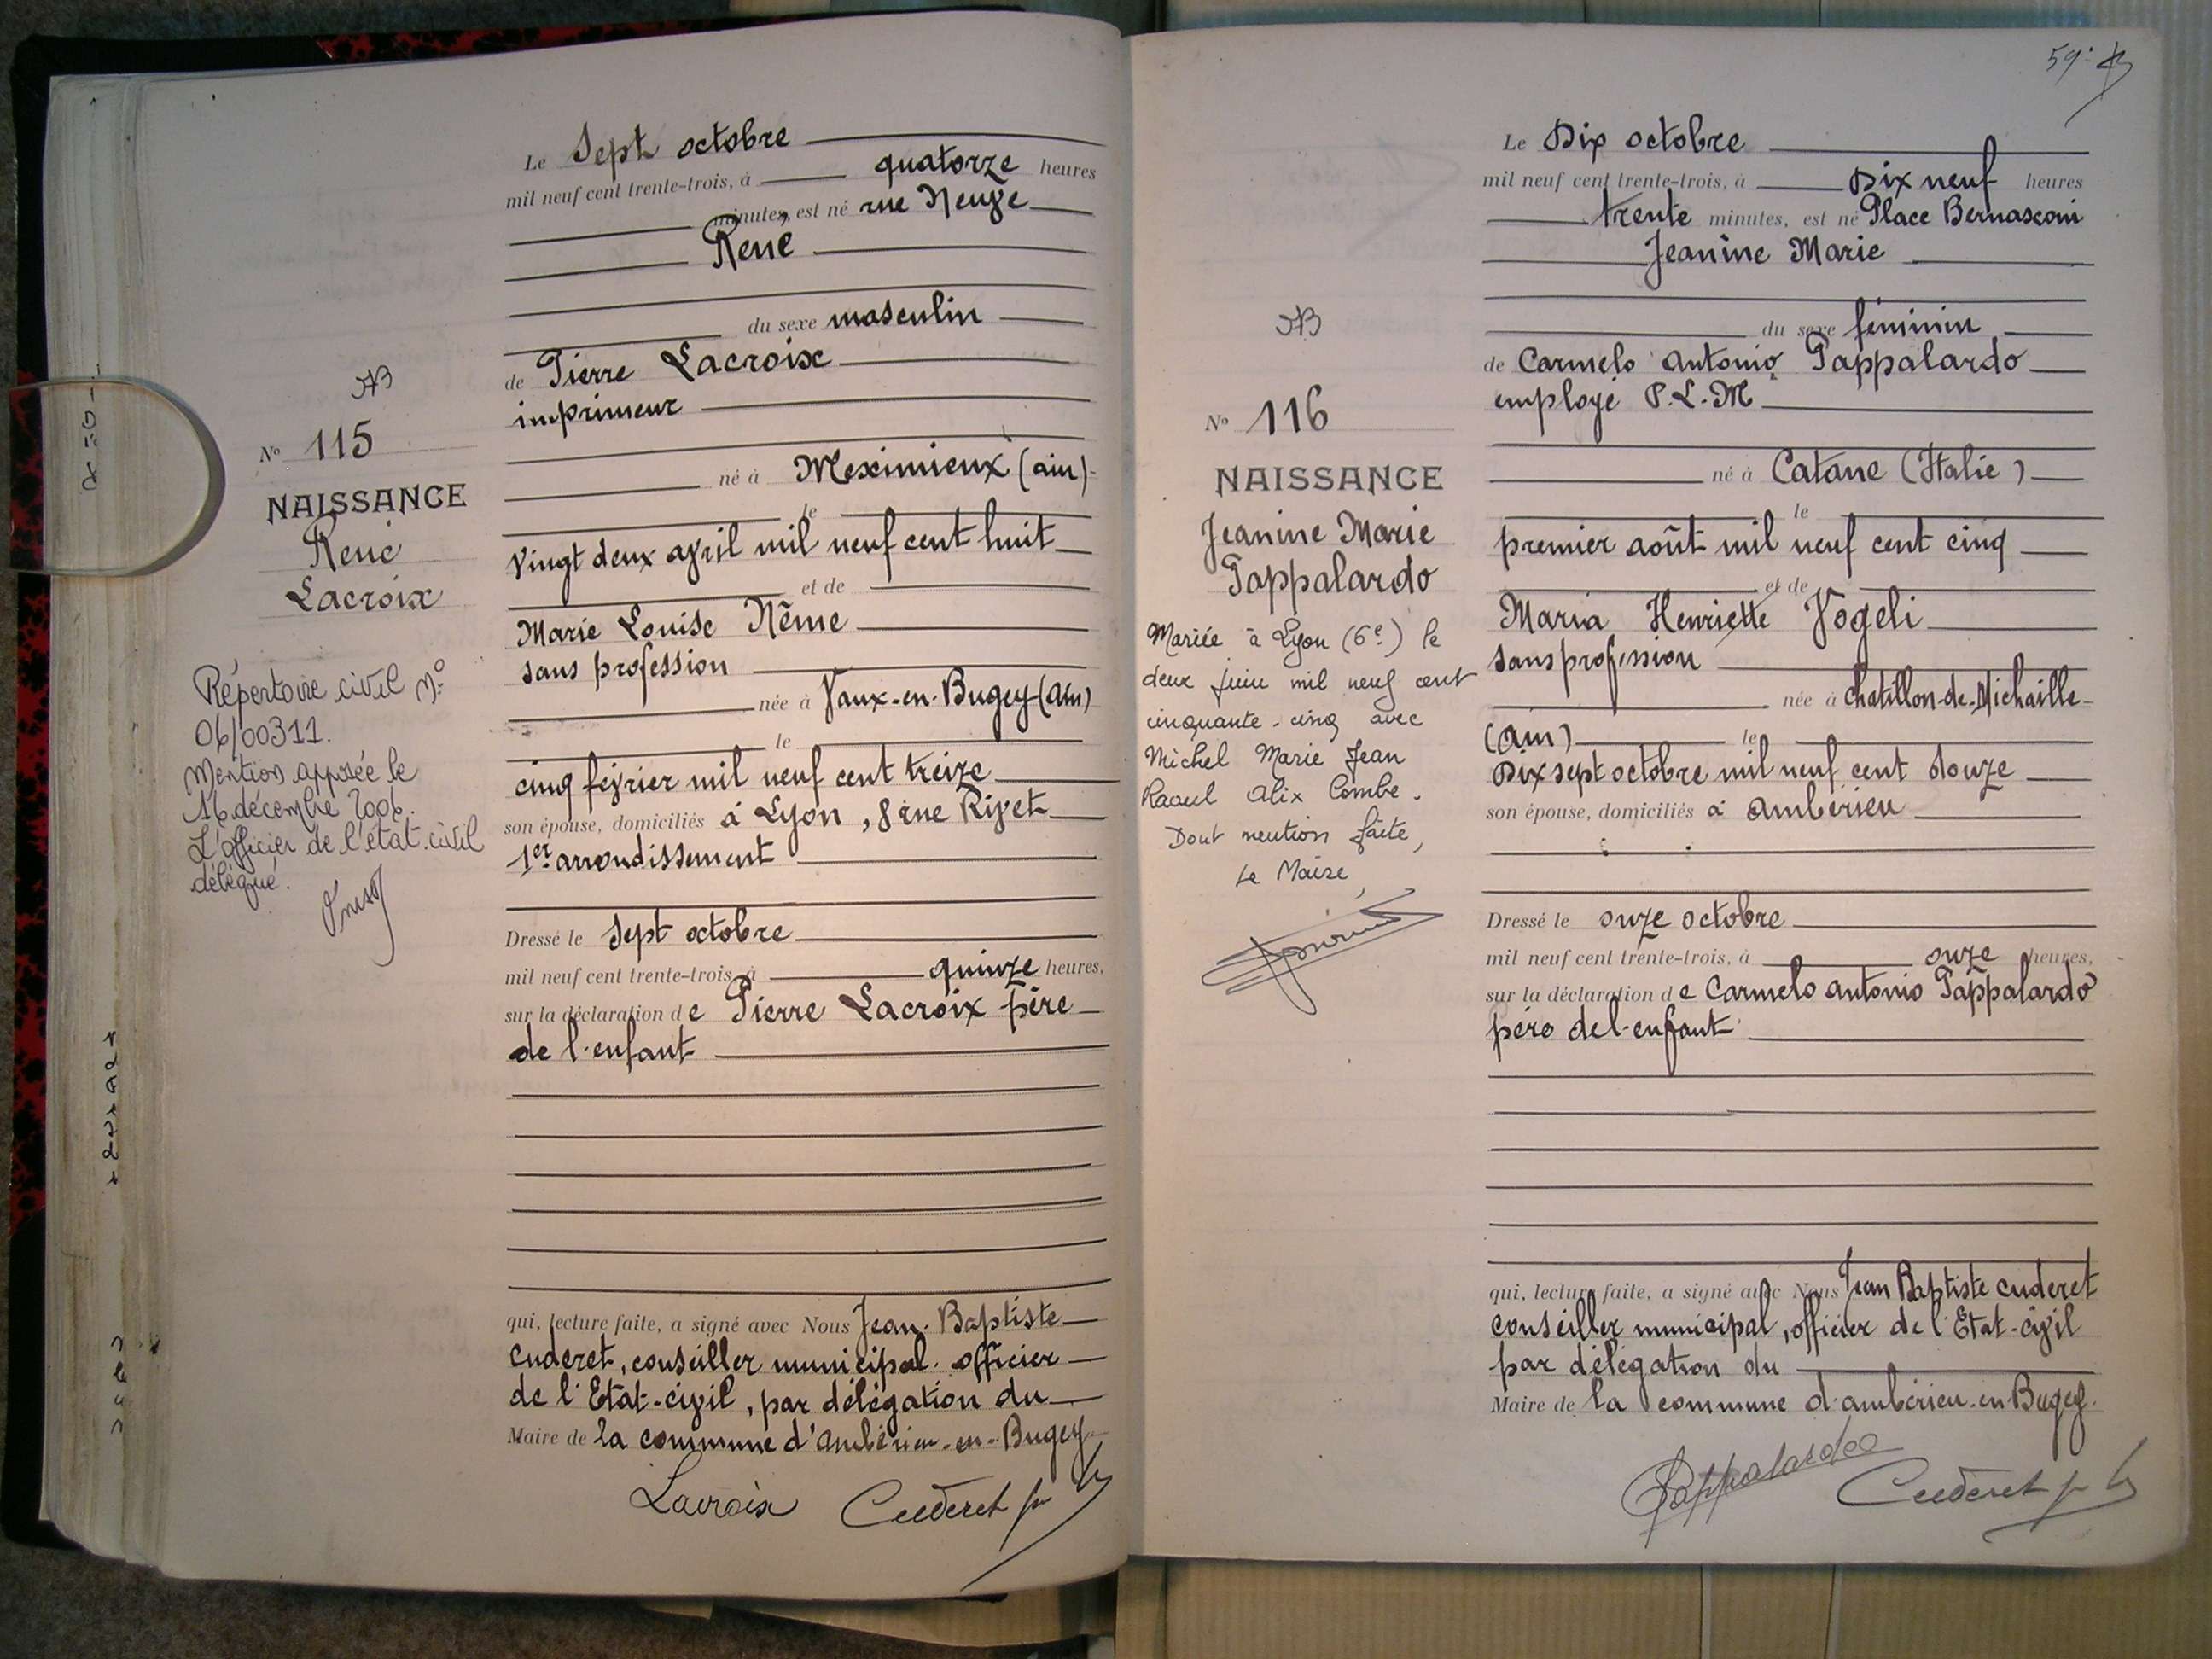 Le Sept octobre
mil neuf cent trente-trois, à quatorze heures
minutes, est né rue Neuve
René
du sexe masculin
de Pierre Lacroix
imprimeur
né à Meximieux (ain)
le
vingt deux avril mil neuf cent huit
et de
Marie Louise Nême
sans profession
née à Vaux-en-Bugey (ain)
le
cinq février mil neuf cent treize
son épouse, domiciliés à Lyon, 8 rue Rivet
1er arrondissement
Dressé le sept octobre
mil neuf cent trente-trois, à quinze heures,
sur la déclaration de Pierre Lacroix père
de l'enfant
qui, lecture faite, a signé avec Nous Jean-Baptiste
Cuderet, conseiller municipal officier
de l'Etat-civil, par délégation du
Maire de la commune d'ambérieu-en-Bugey
Lacroix Cuderet
No 115
NAISSANCE
René
Lacroix
Répertoire civil No
06/00311.
Mention apposée le
16 décembre 2006.
L'officier de l'état civil
délégué.
59
Le Dix octobre
mil neuf cent trente-trois, à Dix neuf heures
trente minutes, est né Place Bernasconi
Jeanine Marie
du sexe féminin
de Carmelo antonio Pappalardo
employé P.L.M
né à Catane (Italie)
le
premier août mil neuf cent cinq
et de
Maria Henriette Vogeli
sans profession
née à chatillon-de-Michaille
(ain) le
Dix sept octobre mil neuf cent douze
son épouse, domiciliés à ambérieu
Dressé le onze octobre
mil neuf cent trente-trois, à onze heures,
sur la déclaration de Carmelo antonio Pappalardo
père de l'enfant
qui, lecture faite, a signé avec Nous Jean Baptiste cuderet
conseiller municipal, officier de l'Etat-civil
par délégation du
Maire de la commune d'ambérieu-en-Bugey.
Pappalardo Cuderet
No 116
NAISSANCE
Jeanine Marie
Pappalardo
Mariée à Lyon (6e) le
deux juin mil neuf cent
cinquante-cinq avec
Michel Marie Jean
Raoul Alix Combe.
Dont mention faite,
Le Maire